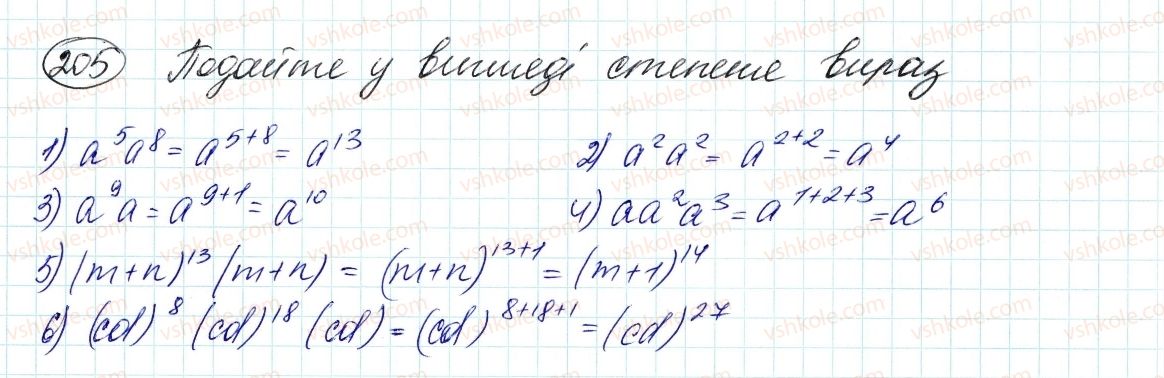 205 Подайте у вигляді степеня вираз
1) a⁵a⁸ = a⁵⁺⁸ = a¹³ 2) a²a² = a²⁺² = a⁴
3) a⁹a = a⁹⁺¹ = a¹⁰ 4) aa²a³ = a¹⁺²⁺³ = a⁶
5) (m+n)¹³(m+n) = (m+n)¹³⁺¹ = (m+1)¹⁴
6) (cd)⁸(cd)¹⁸(cd) = (cd)⁸⁺¹⁸⁺¹ = (cd)²⁷